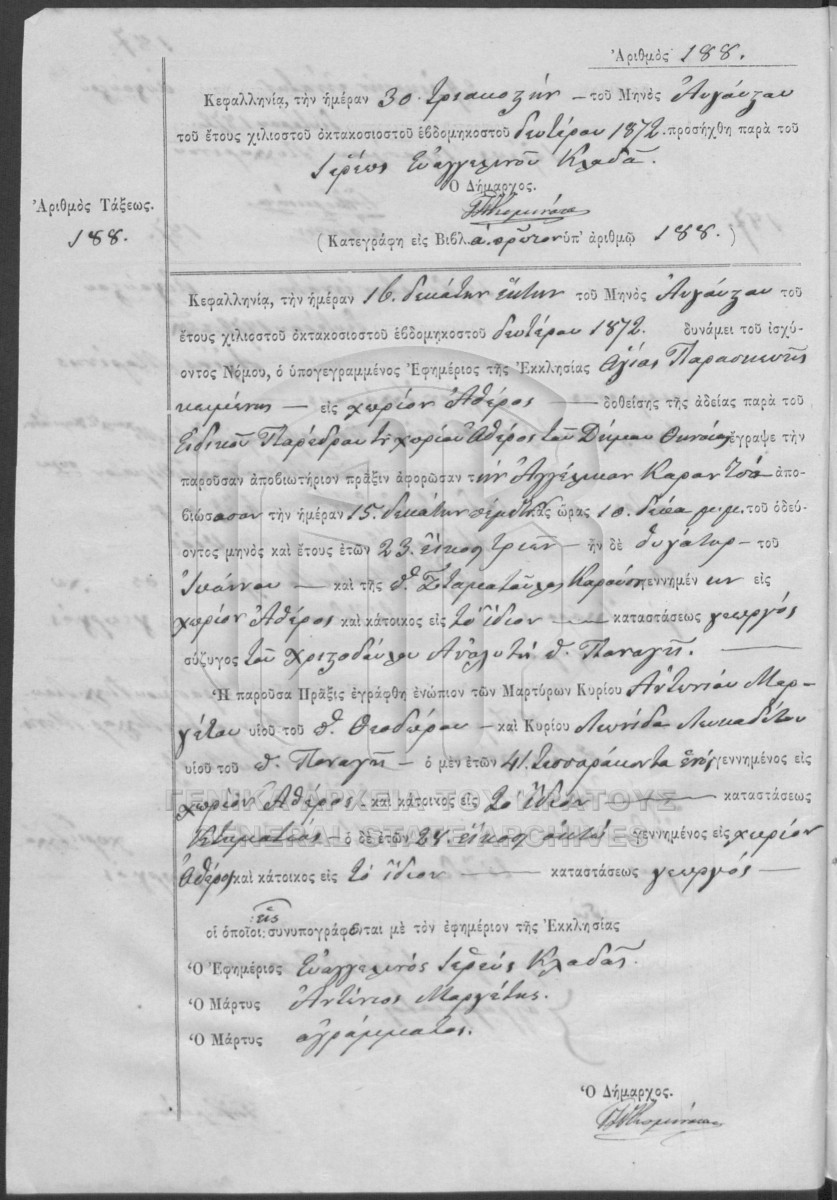 Ἀριθμὸς 188.
Κεφαλληνία, τὴν ἡμέραν 30 τριακοστὴν — τοῦ Μηνὸς Αὐγούστου
τοῦ ἔτους χιλιοστοῦ ὀκτακοσιοστοῦ ἑβδομηκοστοῦ δευτέρου 1872. προσήχθη παρὰ τοῦ
Ἱερέως Εὐαγγελινοῦ Κλαδᾶ.
Ὁ Δήμαρχος.
Ἀριθμὸς Τάξεως.
188.
(Κατεγράφη εἰς Βιβλ. α. πρῶτον ὑπ' ἀριθμῷ 188.)
Κεφαλληνία, τὴν ἡμέραν 16. δεκάτην ἕκτην τοῦ Μηνὸς Αὐγούστου τοῦ
ἔτους χιλιοστοῦ ὀκτακοσιοστοῦ ἑβδομηκοστοῦ δευτέρου 1872. δυνάμει τοῦ ἰσχύ-
οντος Νόμου, ὁ ὑπογεγραμμένος Ἐφημέριος τῆς Ἐκκλησίας Ἁγίας Παρασκευῆς
κειμένης — εἰς χωρίον Ἀθέρος — δοθείσης τῆς ἀδείας παρὰ τοῦ
Εἰδικοῦ Παρέδρου τοῦ χωρίου Ἀθέρος τοῦ Δήμου ἔγραψε τὴν
παροῦσαν ἀποβιωτήριον πρᾶξιν ἀφορῶσαν τὴν Ἀγγέλικαν Καραντσά ἀπο-
βιώσασαν τὴν ἡμέραν 15. δεκάτην πέμπτην ὥρας 10. δέκα μ.μ. τοῦ ὁδεύ-
οντος μηνὸς καὶ ἔτους ἐτῶν 23. εἴκοσι τριῶν — ἦν δὲ θυγάτηρ — τοῦ
Ἰωάννου — καὶ τῆς θ. Σταματούλας Καρούσῃ γεννημένην εἰς
χωρίον Ἀθέρος καὶ κάτοικος εἰς τὸ ἴδιον — καταστάσεως γεωργός
σύζυγος τοῦ Χριστοδούλου Ἀναλυτῆ θ. Παναγῆ. —
Ἡ παροῦσα Πρᾶξις ἐγράφθη ἐνώπιον τῶν Μαρτύρων Κυρίου Ἀντωνίου Μαρ-
γέτου υἱοῦ τοῦ θ. Θεοδώρου — καὶ Κυρίου Λεωνίδα Λευκαδίτου
υἱοῦ τοῦ θ. Παναγῆ — ὁ μὲν ἐτῶν 41. τεσσαράκοντα ἑνός γεννημένος εἰς
χωρίον Ἀθέρος. καὶ κάτοικος εἰς τὸ ἴδιον — καταστάσεως
Κτηματίας — ὁ δὲ ἐτῶν 28. εἴκοσι ὀκτώ γεννημένος εἰς χωρίον
Ἀθέρος καὶ κάτοικος εἰς τὸ ἴδιον — καταστάσεως γεωργός —
οἱ ὁποῖοι: εἷς συνυπογράφεται μὲ τὸν ἐφημέριον τῆς Ἐκκλησίας
Ὁ Ἐφημέριος Εὐαγγελινός Ἱερεύς Κλαδᾶς.
Ὁ Μάρτυς Ἀντώνιος Μαργέτης.
Ὁ Μάρτυς ἀγράμματος.
Ὁ Δήμαρχος.
ΓΕΝΙΚΑ ΑΡΧΕΙΑ ΤΟΥ ΚΡΑΤΟΥΣ
GENERAL STATE ARCHIVES